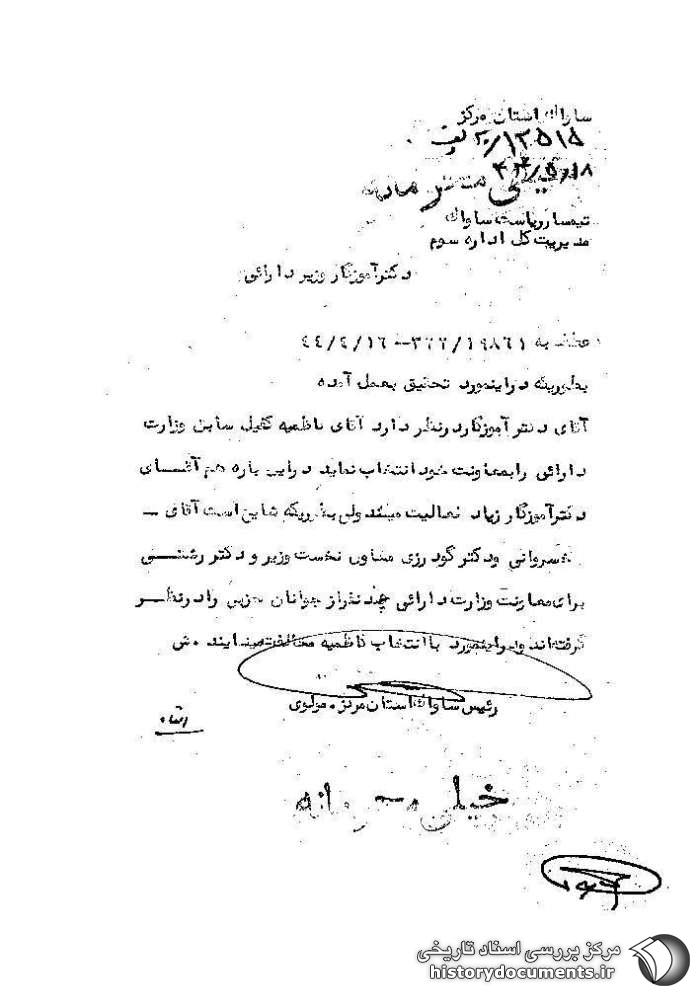 ساواك استان مركز
۲۰/۱۲۵۱۵ الف
۴۴/۵/۱۸
خیلی محرمانه
تیمسار ریاست ساواك
مدیریت كل اداره سوم
دكتر آموزگار وزیر دارائی
عطف به ۳۲۲/۱۹۸۶۱ — ۴۴/۴/۱۶
بطوریكه در اینمورد تحقیق بعمل آمده
آقای دكتر آموزگار در نظر دارد آقای ناظمیه كفیل سابق وزارت
دارائی را بمعاونت خود انتخاب نماید در این باره هم آقـــای
دكتر آموزگار زیاد فعالیت میكند ولی بطوریكه شایع است آقای —
خسروانی و دكتر گودرزی معاون نخست وزیر و دكتر رشتـــی
برای معاونت وزارت دارائی چند نفر از جوانان حزبی را در نظــر
گرفته‌اند و در اینمورد با انتخاب ناظمیه مخالفت مینمایند . ش
رئیس ساواك استان مركز . مولوی
خیلی محرمانه
مركز بررسی اسناد تاریخی
historydocuments.ir